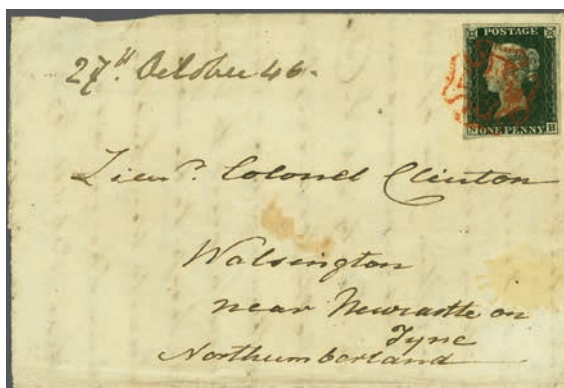 POSTAGE
S ONE PENNY H
27th October 46.
Lieut. Colonel Clinton
Walsington
near Newcastle on
Tyne
Northumberland